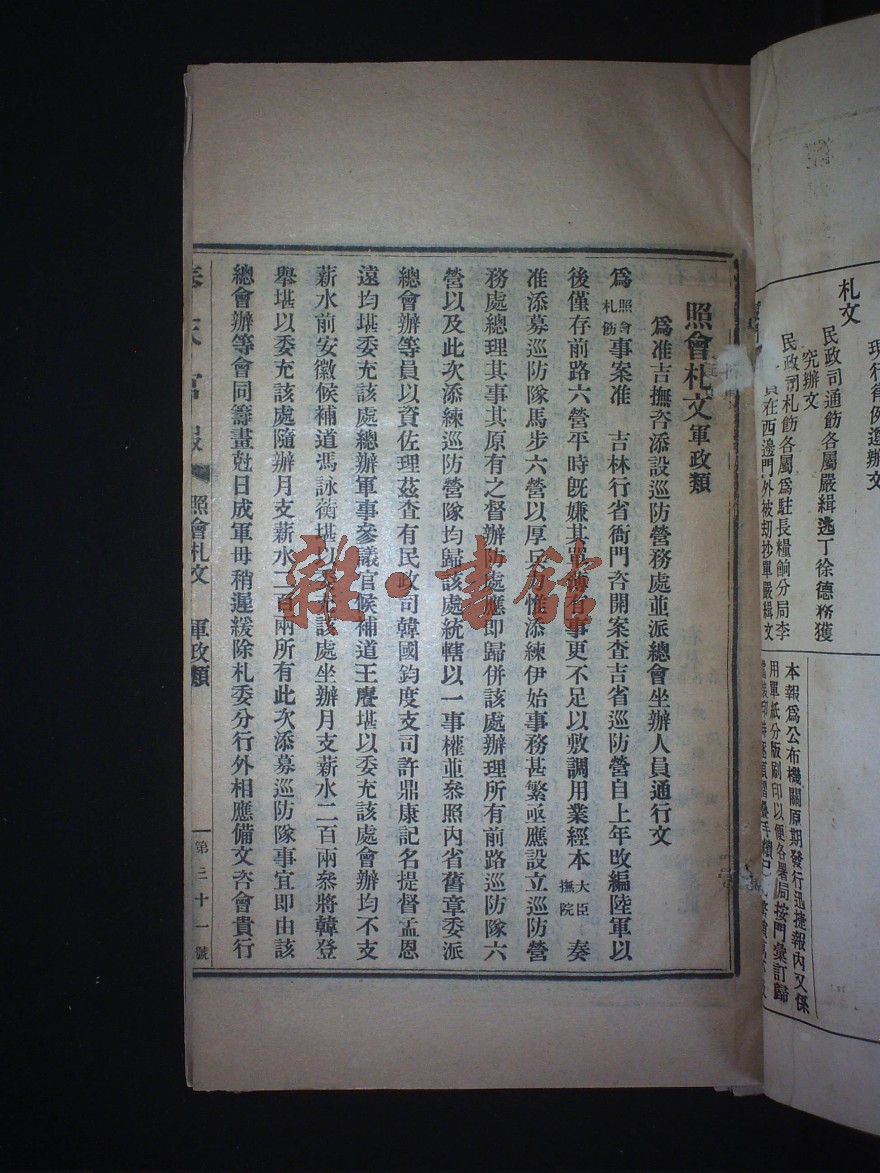 照會札文軍政類
爲准吉撫咨添設巡防營務處並派總會坐辦人員通行文
爲照會札飭事案准 吉林行省衙門咨開案查吉省巡防營自上年改編陸軍以
後僅存前路六營平時旣嫌其單薄有事更不足以敷調用業經本大臣撫院 奏
准添募巡防隊馬步六營以厚兵力惟添練伊始事務甚繁亟應設立巡防營
務處總理其事其原有之督辦防處應即歸併該處辦理所有前路巡防隊六
營以及此次添練巡防營隊均歸該處統轄以一事權並參照內省舊章委派
總會辦等員以資佐理茲查有民政司韓國鈞度支司許鼎康記名提督孟恩
遠均堪委充該處總辦軍事參議官候補道王麐堪以委充該處會辦均不支
薪水前安徽候補道馮詠蘅堪以委充該處坐辦月支薪水二百兩叅將韓登
舉堪以委充該處隨辦月支薪水二百兩所有此次添募巡防隊事宜即由該
總會辦等會同籌畫尅日成軍毋稍遲緩除札委分行外相應備文咨會貴行
官報 照會札文 軍政類 第三十一號
現行育例遵辦文
札文
民政司通飭各屬嚴緝逃丁徐德務獲
究辦文
民政司札飭各屬爲駐長糧餉分局李
員在西邊門外被刧抄單嚴緝文
本報爲公布機關原期發行迅捷報內又係
用單紙分版刷印以便各署局按門彙訂歸
雜·書館